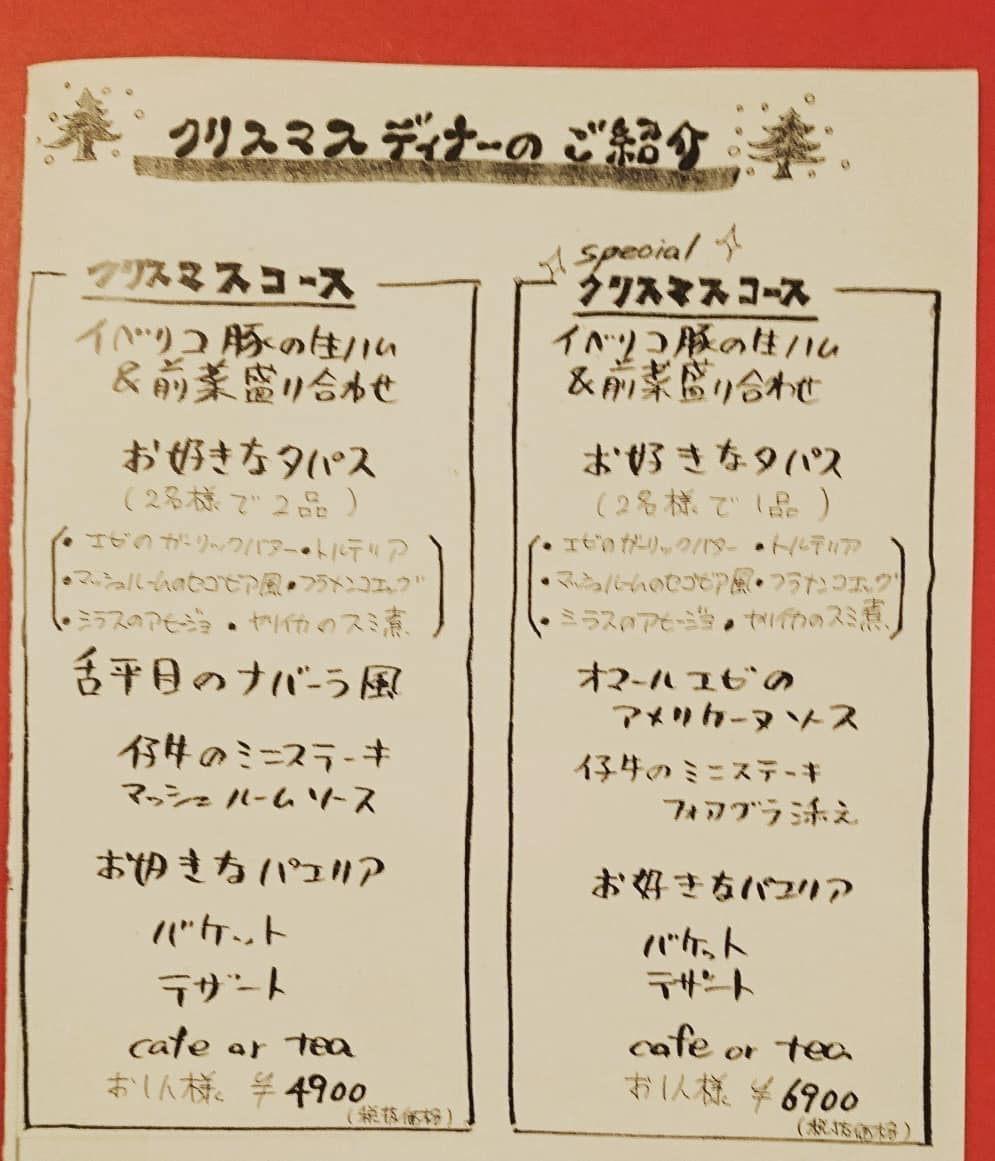 クリスマスディナーのご紹介
クリスマスコース
イベリコ豚の生ハム
&前菜盛り合わせ
お好きなタパス
(2名様で2品)
・エビのガーリックバター・トルティリア
・マッシュルームのセゴビア風・フラメンコエッグ
・シラスのアヒージョ・ヤリイカのスミ煮
舌平目のナバーラ風
仔牛のミニステーキ
マッシュルームソース
お好きなパエリア
バケット
デザート
cafe or tea
お1人様 ¥4900
(税抜価格)
special
クリスマスコース
イベリコ豚の生ハム
&前菜盛り合わせ
お好きなタパス
(2名様で1品)
・エビのガーリックバター ・トルティリア
・マッシュルームのセゴビア風・フラメンコエッグ
・シラスのアヒージョ・ヤリイカのスミ煮
オマールエビの
アメリケーヌソース
仔牛のミニステーキ
フォアグラ添え
お好きなパエリア
バケット
デザート
cafe or tea
お1人様 ¥6900
(税抜価格)